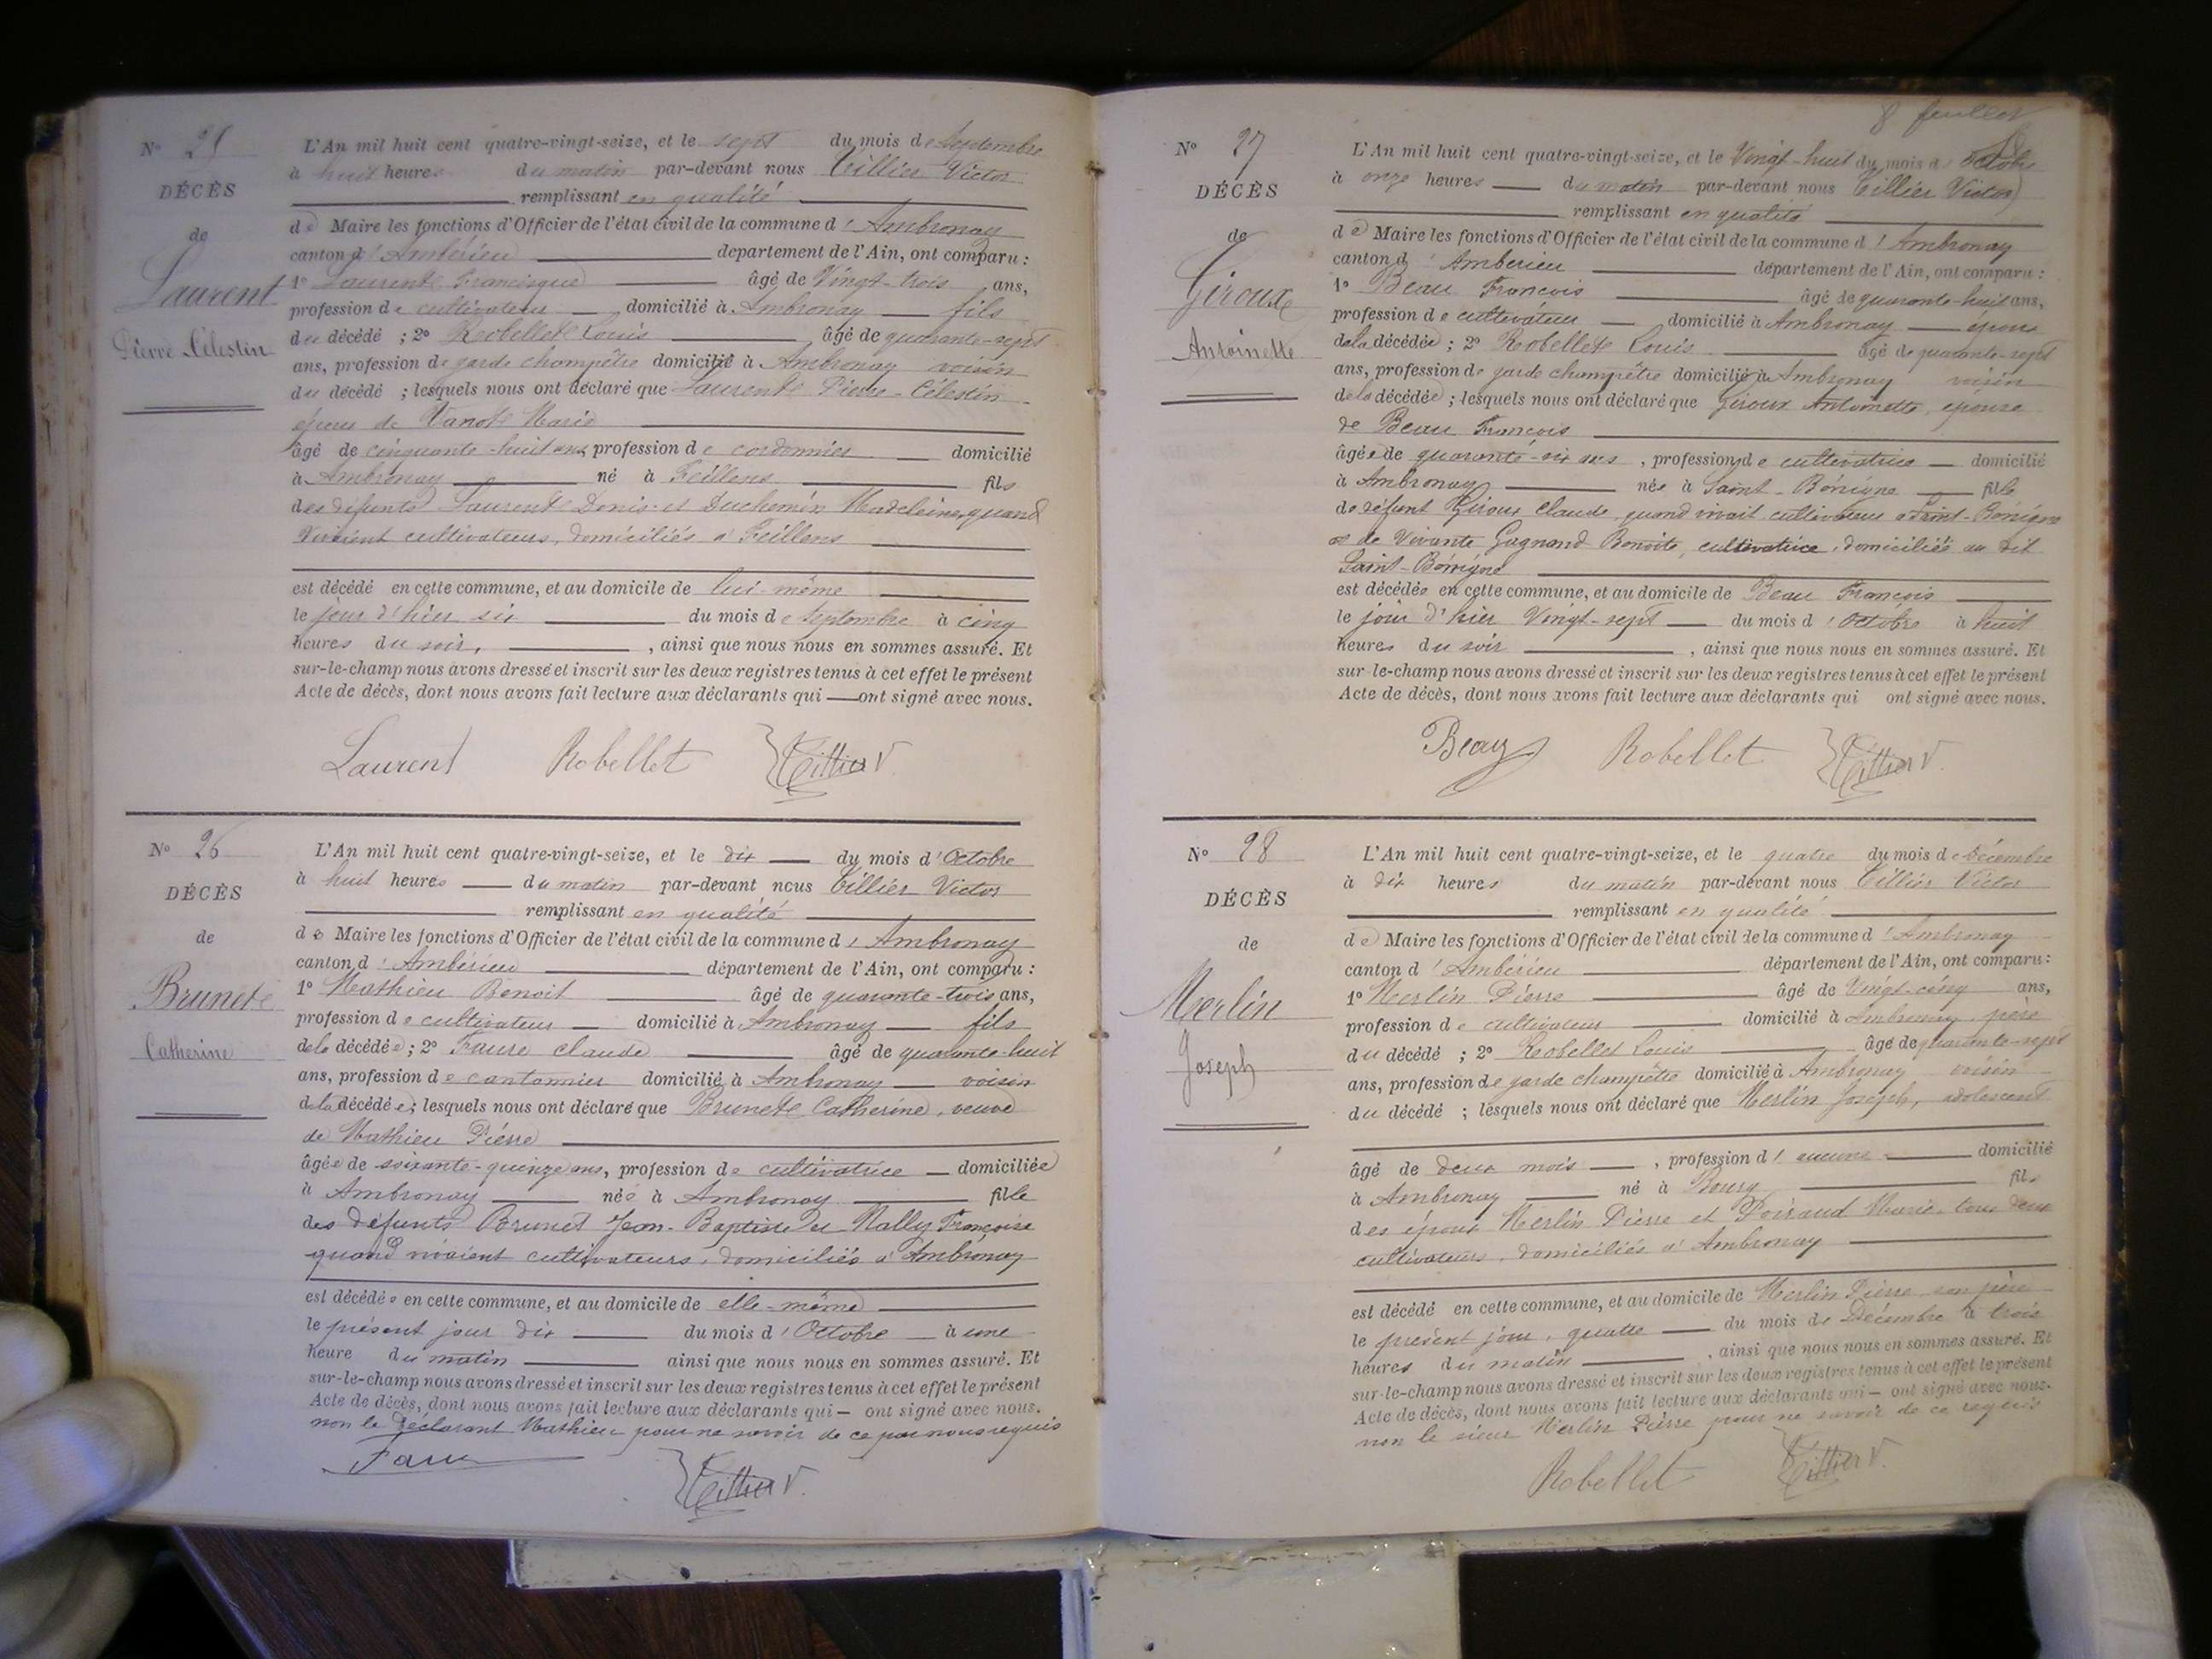 N° 25
DÉCÈS
de
Laurent
Pierre Célestin
L'An mil huit cent quatre-vingt-seize, et le sept du mois de Septembre
à huit heures du matin par-devant nous Tillier Victor
remplissant en qualité
de Maire les fonctions d'Officier de l'état civil de la commune d'Ambronay
canton d'Ambérieu département de l'Ain, ont comparu :
1° Laurent Francisque âgé de Vingt-trois ans,
profession de cultivateur domicilié à Ambronay fils
du décédé ; 2° Robellet Louis âgé de quarante-sept
ans, profession de garde champêtre domicilié à Ambronay voisin
du décédé ; lesquels nous ont déclaré que Laurent Pierre-Célestin
époux de Vanot Marie
âgé de cinquante-huit ans profession de cordonnier domicilié
à Ambronay né à Feillens fils
des défunts Laurent Denis et Duchemin Madeleine, quand
vivaient cultivateurs, domiciliés à Feillens
est décédé en cette commune, et au domicile de lui-même
le jour d'hier six du mois de Septembre à cinq
heures du soir, , ainsi que nous nous en sommes assuré. Et
sur-le-champ nous avons dressé et inscrit sur les deux registres tenus à cet effet le présent
Acte de décès, dont nous avons fait lecture aux déclarants qui ont signé avec nous.
Laurent Robellet Tillier V
N° 26
DÉCÈS
de
Brunet
Catherine
L'An mil huit cent quatre-vingt-seize, et le dix du mois d'Octobre
à huit heures du matin par-devant nous Tillier Victor
remplissant en qualité
de Maire les fonctions d'Officier de l'état civil de la commune d'Ambronay
canton d'Ambérieu département de l'Ain, ont comparu :
1° Mathieu Benoit âgé de quarante-trois ans,
profession de cultivateur domicilié à Ambronay fils
de la décédée ; 2° Faure Claude âgé de quarante-huit
ans, profession de cantonnier domicilié à Ambronay voisin
de la décédée ; lesquels nous ont déclaré que Brunet Catherine, veuve
de Mathieu Pierre
âgée de soixante-quinze ans, profession de cultivatrice domiciliée
à Ambronay née à Ambronay fille
des défunts Brunet Jean-Baptiste et Mally Françoise
quand vivaient cultivateurs, domiciliés à Ambronay
est décédée en cette commune, et au domicile de elle-même
le présent jour dix du mois d'Octobre à une
heure du matin ainsi que nous nous en sommes assuré. Et
sur-le-champ nous avons dressé et inscrit sur les deux registres tenus à cet effet le présent
Acte de décès, dont nous avons fait lecture aux déclarants qui ont signé avec nous.
non le déclarant Mathieu pour ne savoir de ce par nous requis
Faure
Tillier V.
8 feuillet
N° 27
DÉCÈS
de
Giroux
Antoinette
L'An mil huit cent quatre-vingt-seize, et le Vingt-huit du mois d'Octobre
à onze heures du matin par-devant nous Tillier Victor
remplissant en qualité
de Maire les fonctions d'Officier de l'état civil de la commune d'Ambronay
canton d'Ambérieu département de l'Ain, ont comparu :
1° Beau François âgé de quarante-huit ans,
profession de cultivateur domicilié à Ambronay époux
de la décédée ; 2° Robellet Louis âgé de quarante-sept
ans, profession de garde champêtre domicilié à Ambronay voisin
de la décédée ; lesquels nous ont déclaré que Giroux Antoinette, épouse
de Beau François
âgée de quarante-six ans , profession de cultivatrice domicilié
à Ambronay née à Saint-Bénigne fille
de défunt Giroux Claude, quand vivait cultivateur à Saint-Bénigne
et de Vivante Gagnand Benoite, cultivatrice, domiciliée au dit
Saint-Bénigne
est décédée en cette commune, et au domicile de Beau François
le jour d'hier Vingt-sept du mois d'Octobre à huit
heures du soir , ainsi que nous nous en sommes assuré. Et
sur-le-champ nous avons dressé et inscrit sur les deux registres tenus à cet effet le présent
Acte de décès, dont nous avons fait lecture aux déclarants qui ont signé avec nous.
Beau Robellet Tillier V.
N° 28
DÉCÈS
de
Merlin
Joseph
L'An mil huit cent quatre-vingt-seize, et le quatre du mois de Décembre
à dix heures du matin par-devant nous Tillier Victor
remplissant en qualité
de Maire les fonctions d'Officier de l'état civil de la commune d'Ambronay
canton d'Ambérieu département de l'Ain, ont comparu :
1° Merlin Pierre âgé de Vingt-cinq ans,
profession de cultivateur domicilié à Ambronay père
du décédé ; 2° Robellet Louis âgé de quarante-sept
ans, profession de garde champêtre domicilié à Ambronay voisin
du décédé ; lesquels nous ont déclaré que Merlin Joseph, adolescent
âgé de deux mois , profession d'aucune domicilié
à Ambronay né à Bourg fils
des époux Merlin Pierre et Poiraud Marie, tous deux
cultivateurs, domiciliés à Ambronay
est décédé en cette commune, et au domicile de Merlin Pierre son père
le présent jour, quatre du mois de Décembre à trois
heures du matin , ainsi que nous nous en sommes assuré. Et
sur-le-champ nous avons dressé et inscrit sur les deux registres tenus à cet effet le présent
Acte de décès, dont nous avons fait lecture aux déclarants qui ont signé avec nous.
non le sieur Merlin Pierre pour ne savoir de ce requis
Robellet Tillier V.